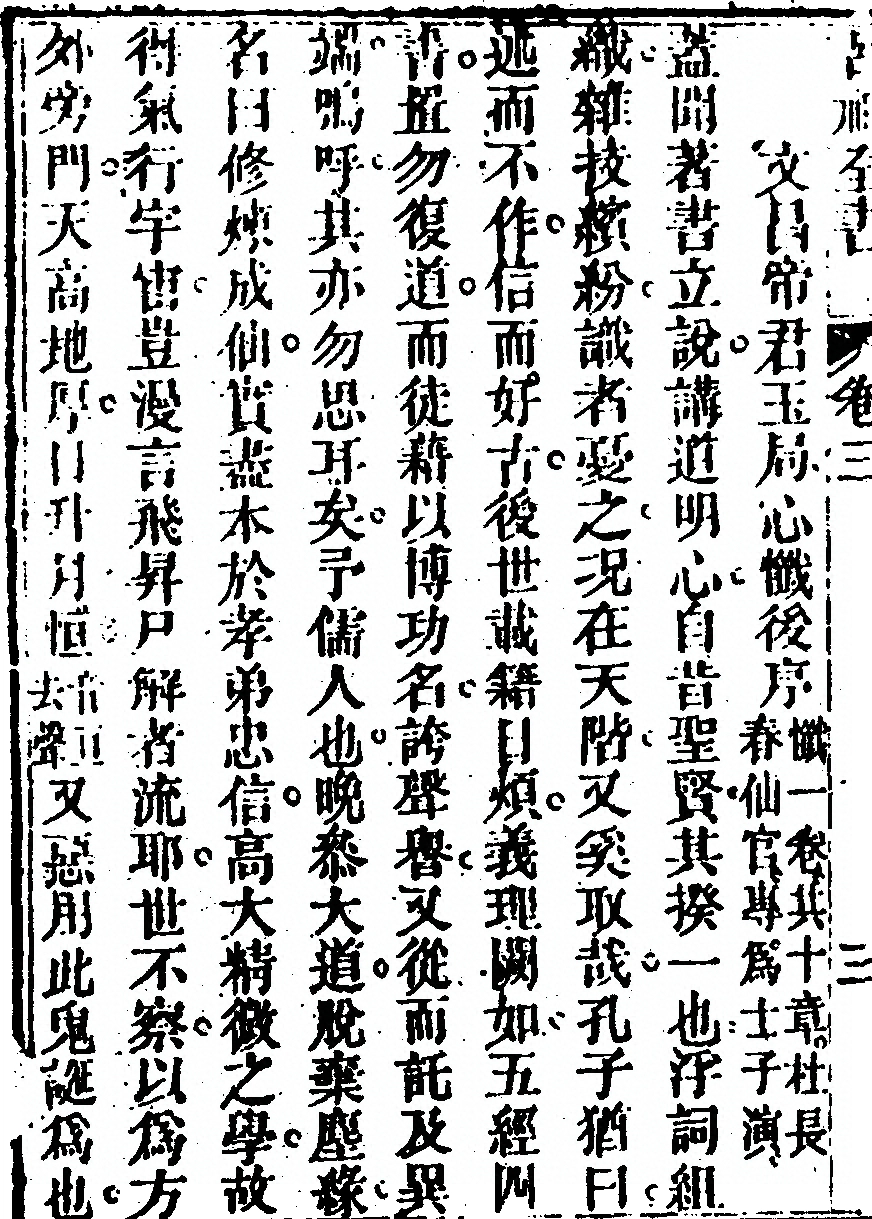 全書
卷三
三
文昌帝君玉局心懺後序懺一卷共十章杜長春仙官專爲士子演
蓋聞著書立說講道明心自昔聖賢其揆一也浮詞組
織雜技繽紛識者憂之況在天階又奚取哉孔子猶曰
述而不作信而好古後世載籍日煩義理闕如五經四
書置勿復道而徒藉以博功名誇聲譽又從而託及異
端嗚呼其亦勿思耳矣予儒人也晚叅大道脫棄塵緣
名曰修煉成仙實盡本於孝弟忠信高大精微之學故
得氣行宇宙豈漫言飛昇尸解者流耶世不察以爲方
外旁門天高地厚日升月恒音亘去聲又惡用此鬼誕爲也